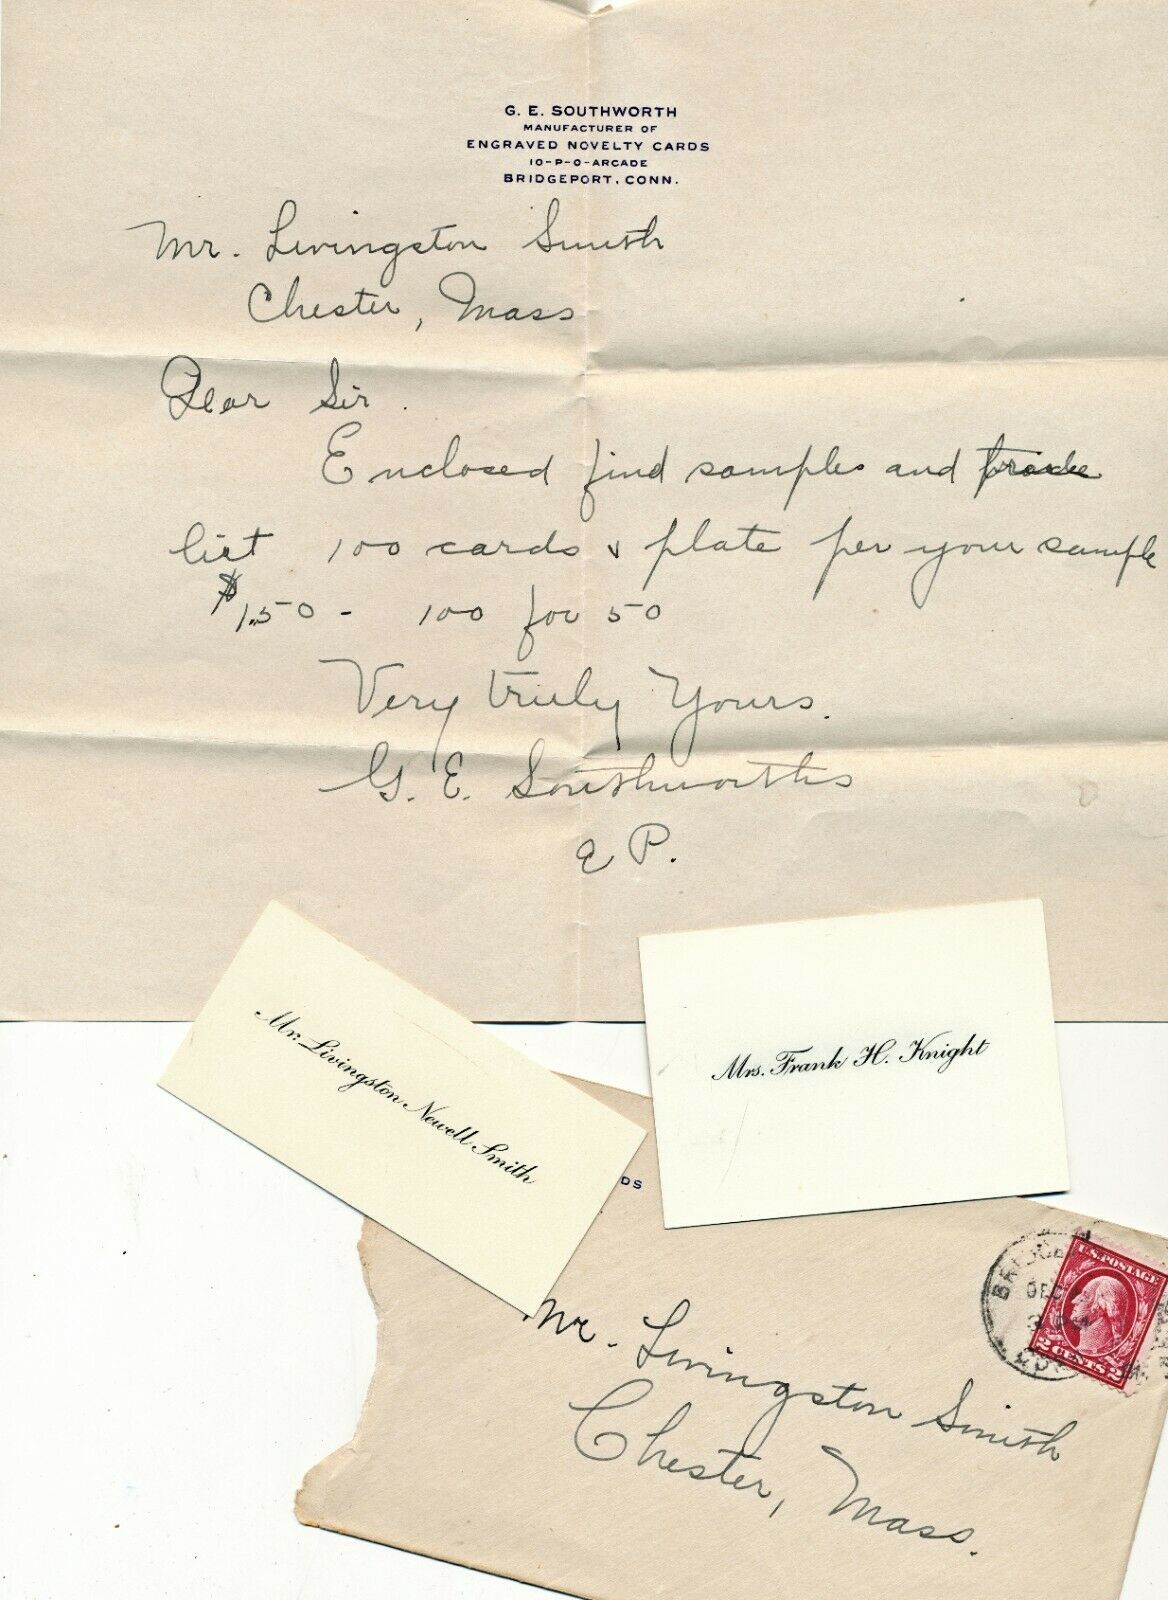 G. E. SOUTHWORTH
MANUFACTURER OF
ENGRAVED NOVELTY CARDS
10-P-O-ARCADE
BRIDGEPORT, CONN.
Mr. Livingston Smith
Chester, Mass
Dear Sir.
Enclosed find samples and
list 100 cards & plate per your sample
$1.50 - 100 for 50
Very truly Yours.
G. E. Southworth
E P.
Mr. Livingston Newell Smith
Mrs. Frank H. Knight
DS
BRIDGE
DEC
3 PM
U.S. POSTAGE
2 CENTS 2
Mr. Livingston Smith
Chester, Mass.